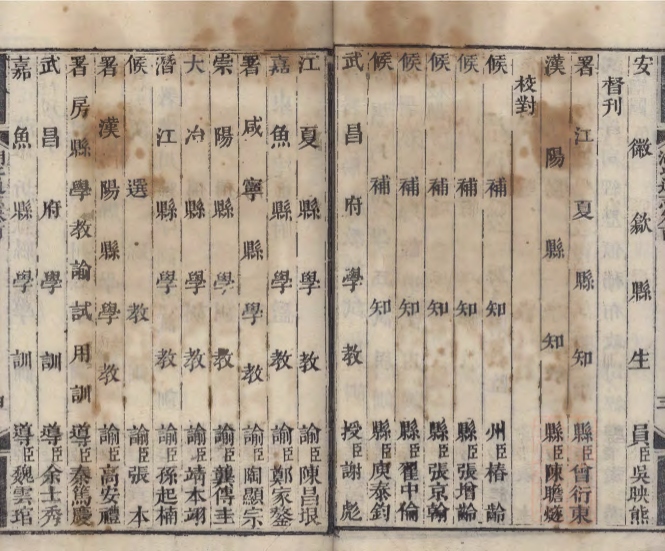 安徽歙縣生員臣吳映熊
督刊
署江夏縣知縣臣曾衍東
漢陽縣知縣臣陳瞻燧
校對
候補知州臣椿齡
候補知縣臣張增齡
候補知縣臣張京翰
候補知縣臣翟中倫
候補知縣臣庾泰鈞
武昌府學教授謝彪
江夏縣學教諭臣陳昌垠
嘉魚縣學教諭臣鄭家鏊
署咸寧縣學教諭臣陶顯宗
崇陽縣學教諭臣龔傳圭
大冶縣學教諭臣靖本翊
潛江縣學教諭臣孫起楠
候選教諭臣張本
署漢陽縣學教諭臣高安禮
署房縣學教諭試用訓導臣秦篤慶
武昌府學訓導臣余士秀
嘉魚縣學訓導臣魏雲琯